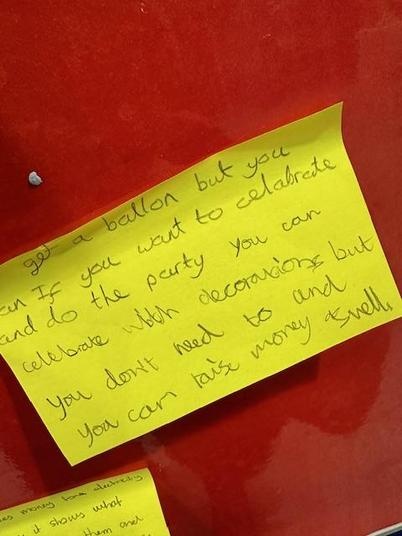 get a ballon but you
can If you want to celabrate
and do the party you can
celebrate with decorasions but
you don't need to and
you can raise money aswell.
es money
it shows what
them and